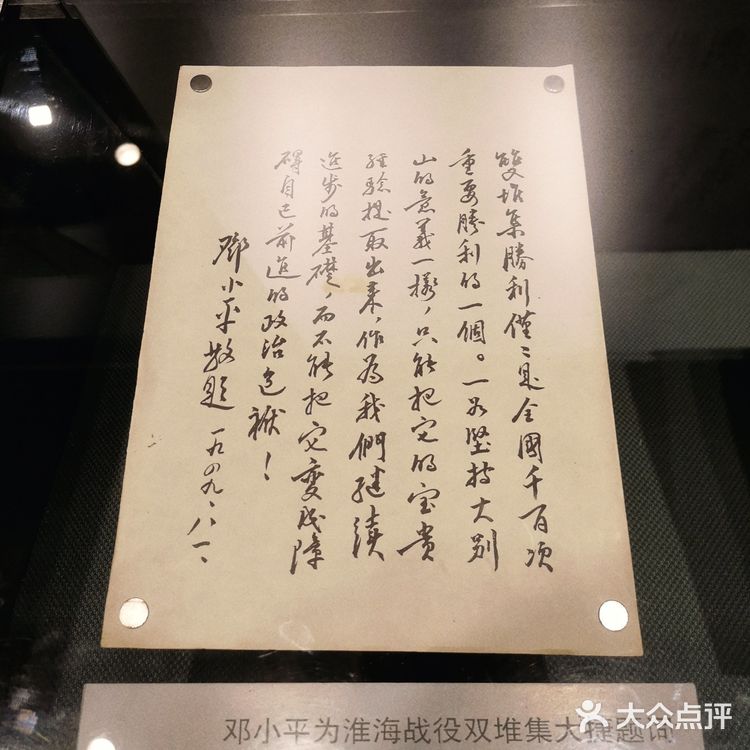 雙堆集勝利僅〻是全國千百項
重要勝利的一個。一如堅持大别
山的意義一樣，只能把它的宝貴
經驗提取出来，作為我們継續
進步的基礎，而不能把它变成障
碍自己前進的政治包袱！
鄧小平敬題 一九四九、八、一、
邓小平为淮海战役双堆集大捷题词
大众点评